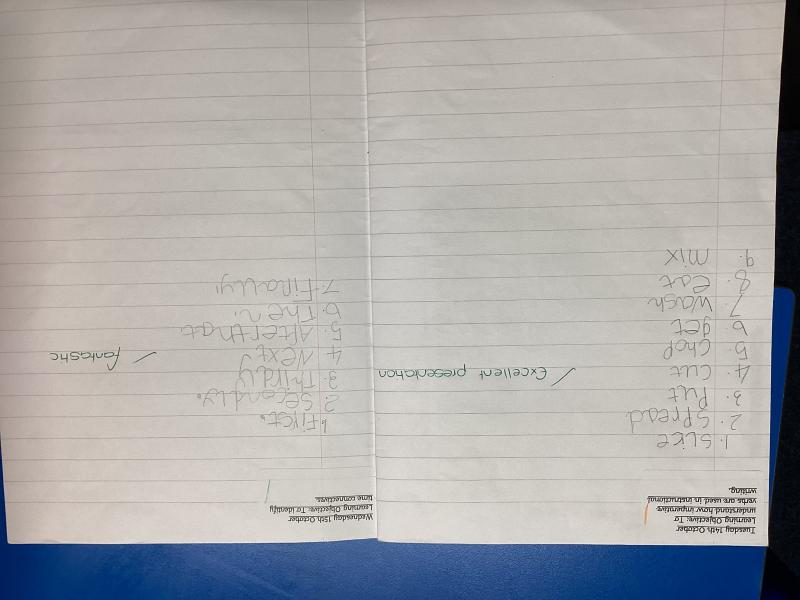 Tuesday 14th October
Learning Objective: To
understand how imperative
verbs are used in instructional
writing.
1. Slice
2. Spread
3. Put
4. Cut
5. Chop
6 get
7 Wash
8. eat
9. mix
✓ Excellent presentation
Wednesday 15th October
Learning Objective: To identify
time connectives.
1. First.
2. Secondly.
3. Thirdly
4. Next
5. After that
6. Then.
7. Finally.
✓ fantastic